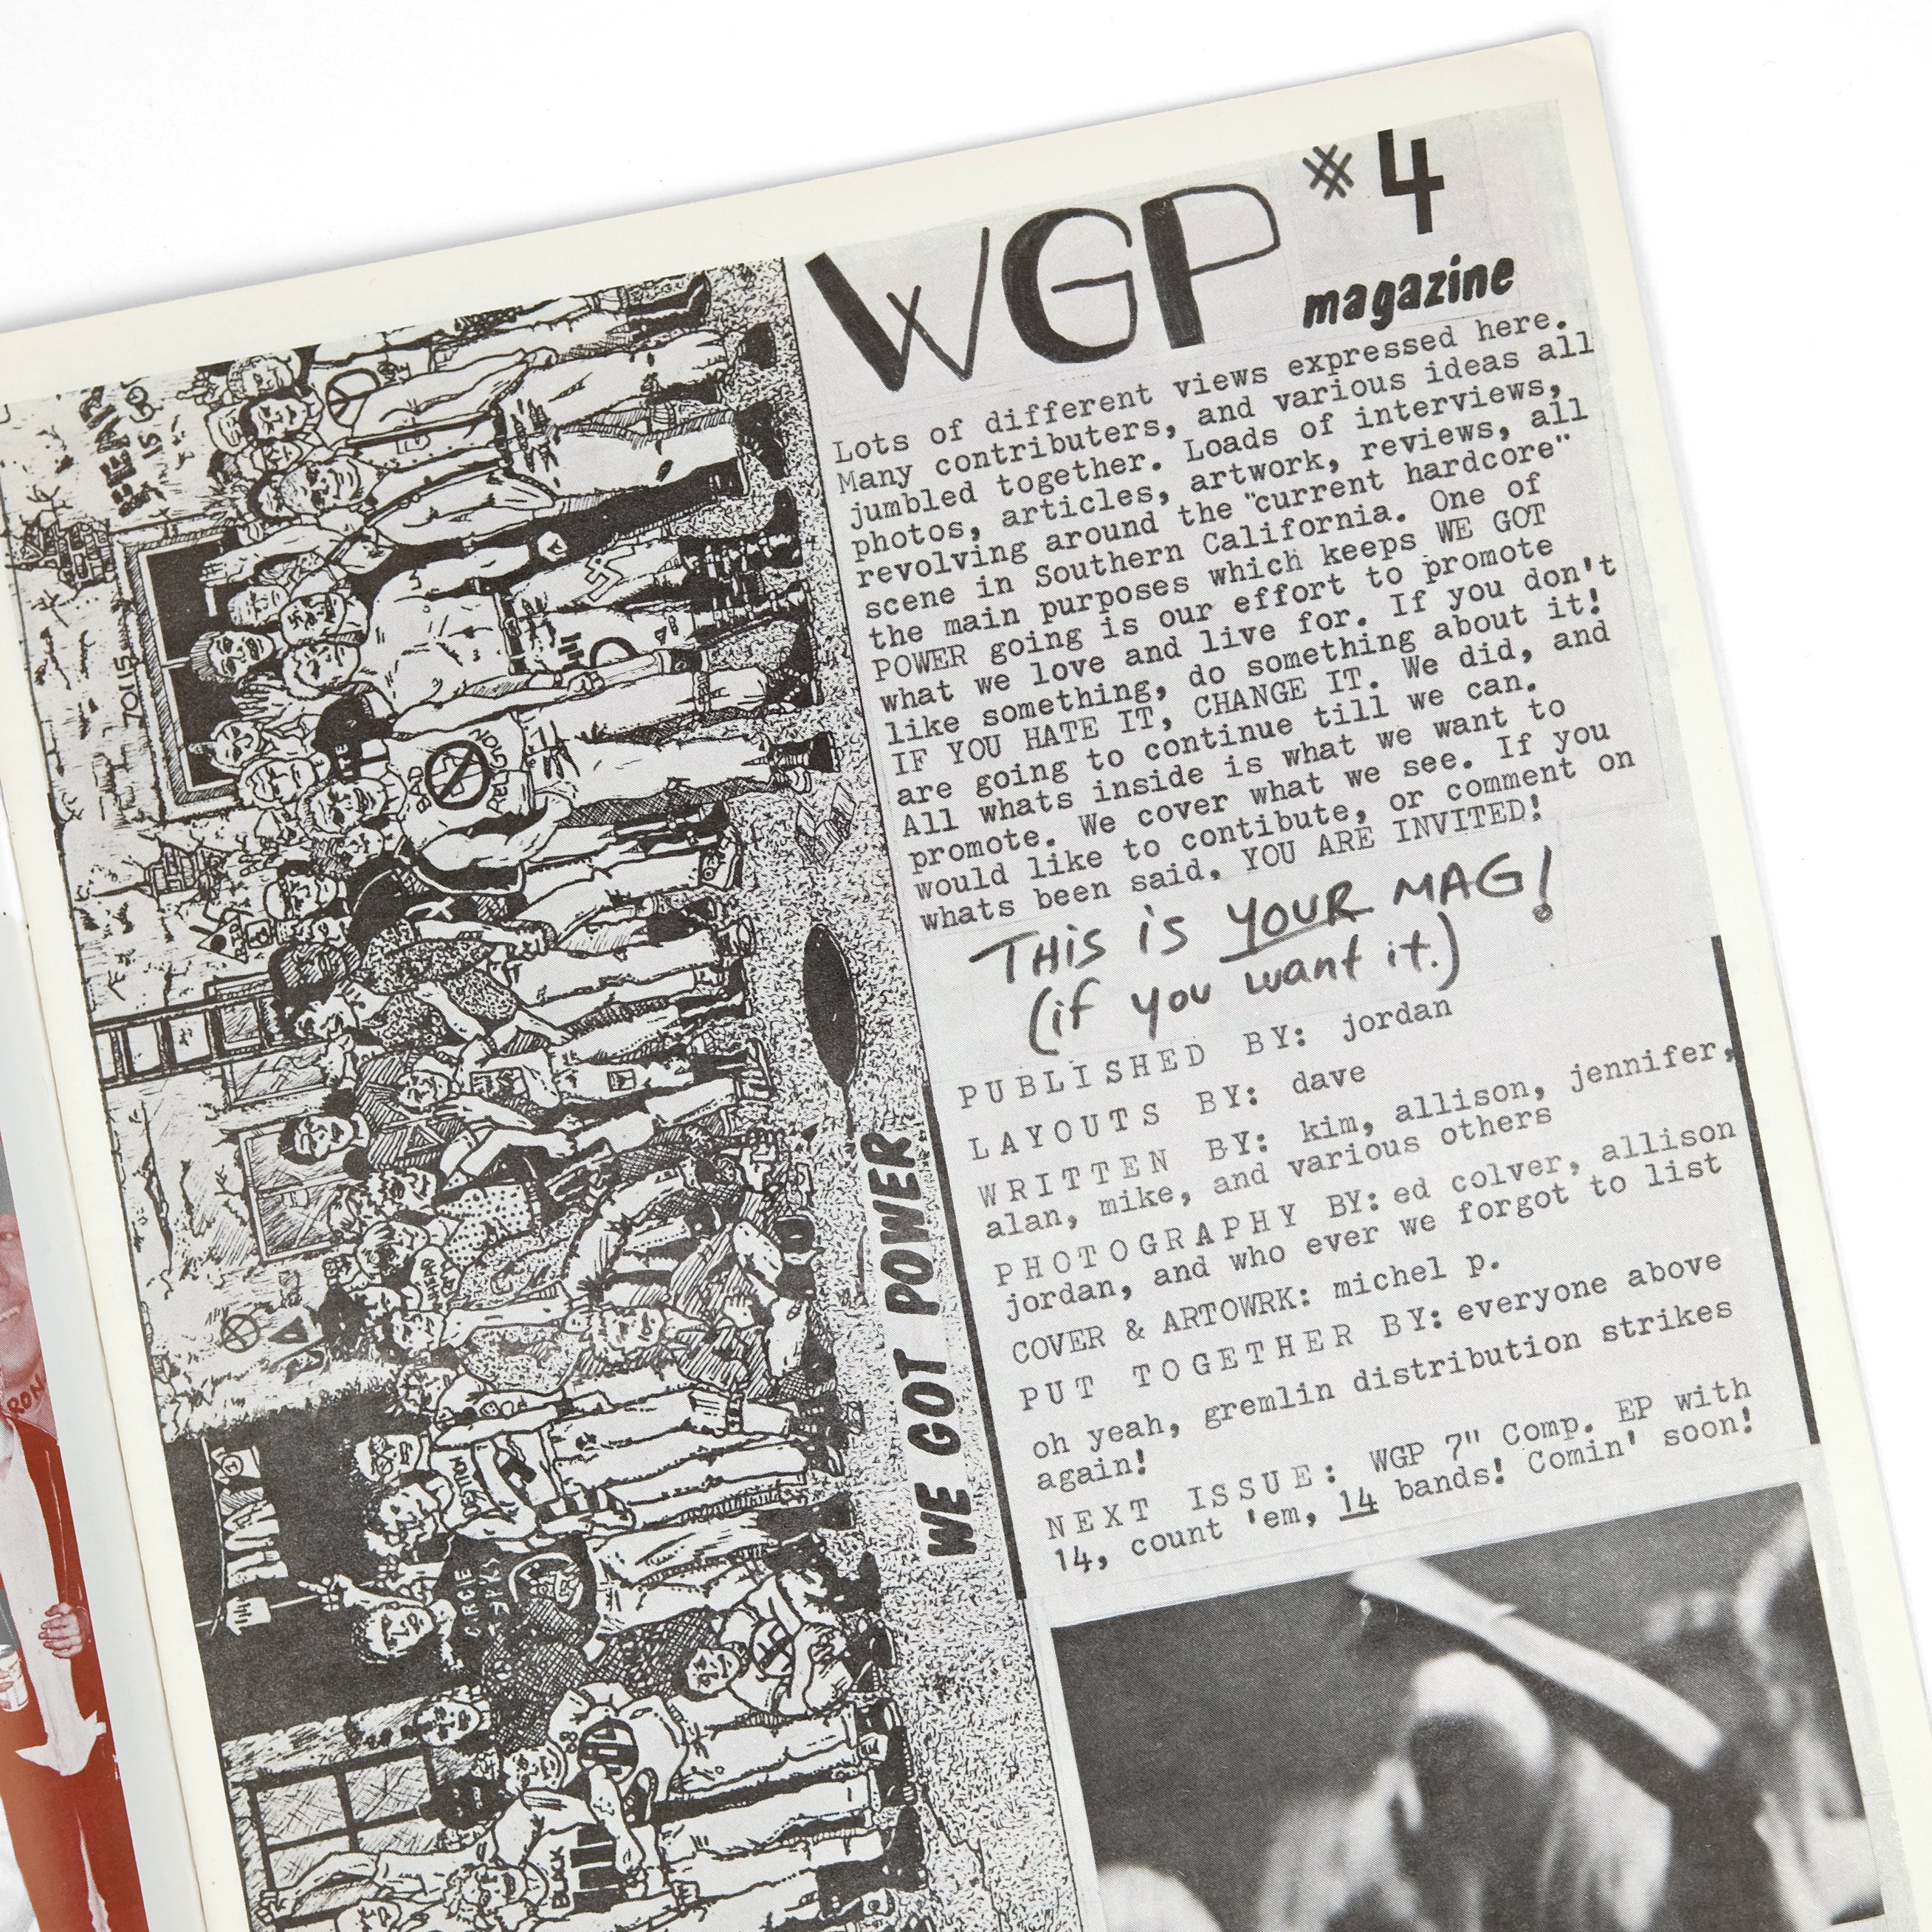 WGP #4
magazine
Lots of different views expressed here.
Many contributers, and various ideas all
jumbled together. Loads of interviews,
photos, articles, artwork, reviews, all
revolving around the "current hardcore"
scene in Southern California. One of
the main purposes which keeps WE GOT
POWER going is our effort to promote
what we love and live for. If you don't
like something, do something about it!
IF YOU HATE IT, CHANGE IT. We did, and
are going to continue till we can.
All whats inside is what we want to
promote. We cover what we see. If you
would like to contibute, or comment on
whats been said, YOU ARE INVITED!
THIS iS YOUR MAG!
(if you want it.)
PUBLISHED BY: jordan
LAYOUTS BY: dave
WRITTEN BY: kim, allison, jennifer,
alan, mike, and various others
PHOTOGRAPHY BY: ed colver, allison
jordan, and who ever we forgot to list
COVER & ARTOWRK: michel p.
PUT TOGETHER BY: everyone above
oh yeah, gremlin distribution strikes
again!
NEXT ISSUE: WGP 7" Comp. EP with
14, count 'em, 14 bands! Comin' soon!
WE GOT POWER
BAD
RELIGION
CIRCLE
JERKS
BLACK